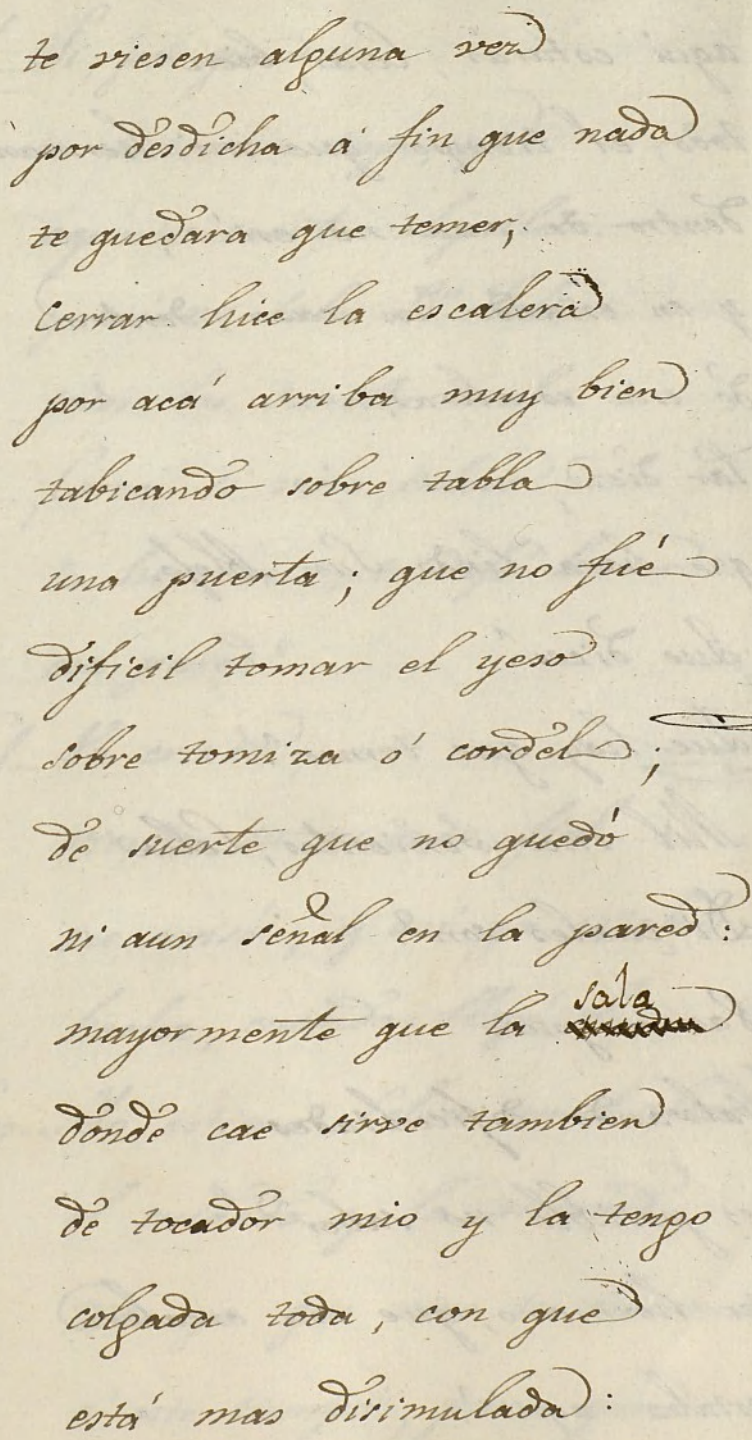 te viesen alguna vez
por desdicha á fin que nada
te quedara que temer,
Cerrar hice la escalera
por acá arriba muy bien
tabicando sobre tabla
una puerta; que no fué
dificil tomar el yeso
sobre tomiza ó cordel;
de suerte que no quedó
ni aun señal en la pared:
mayormente que la sala
donde cae sirve tambien
de tocador mio y la tengo
colgada toda, con que
está mas disimulada: